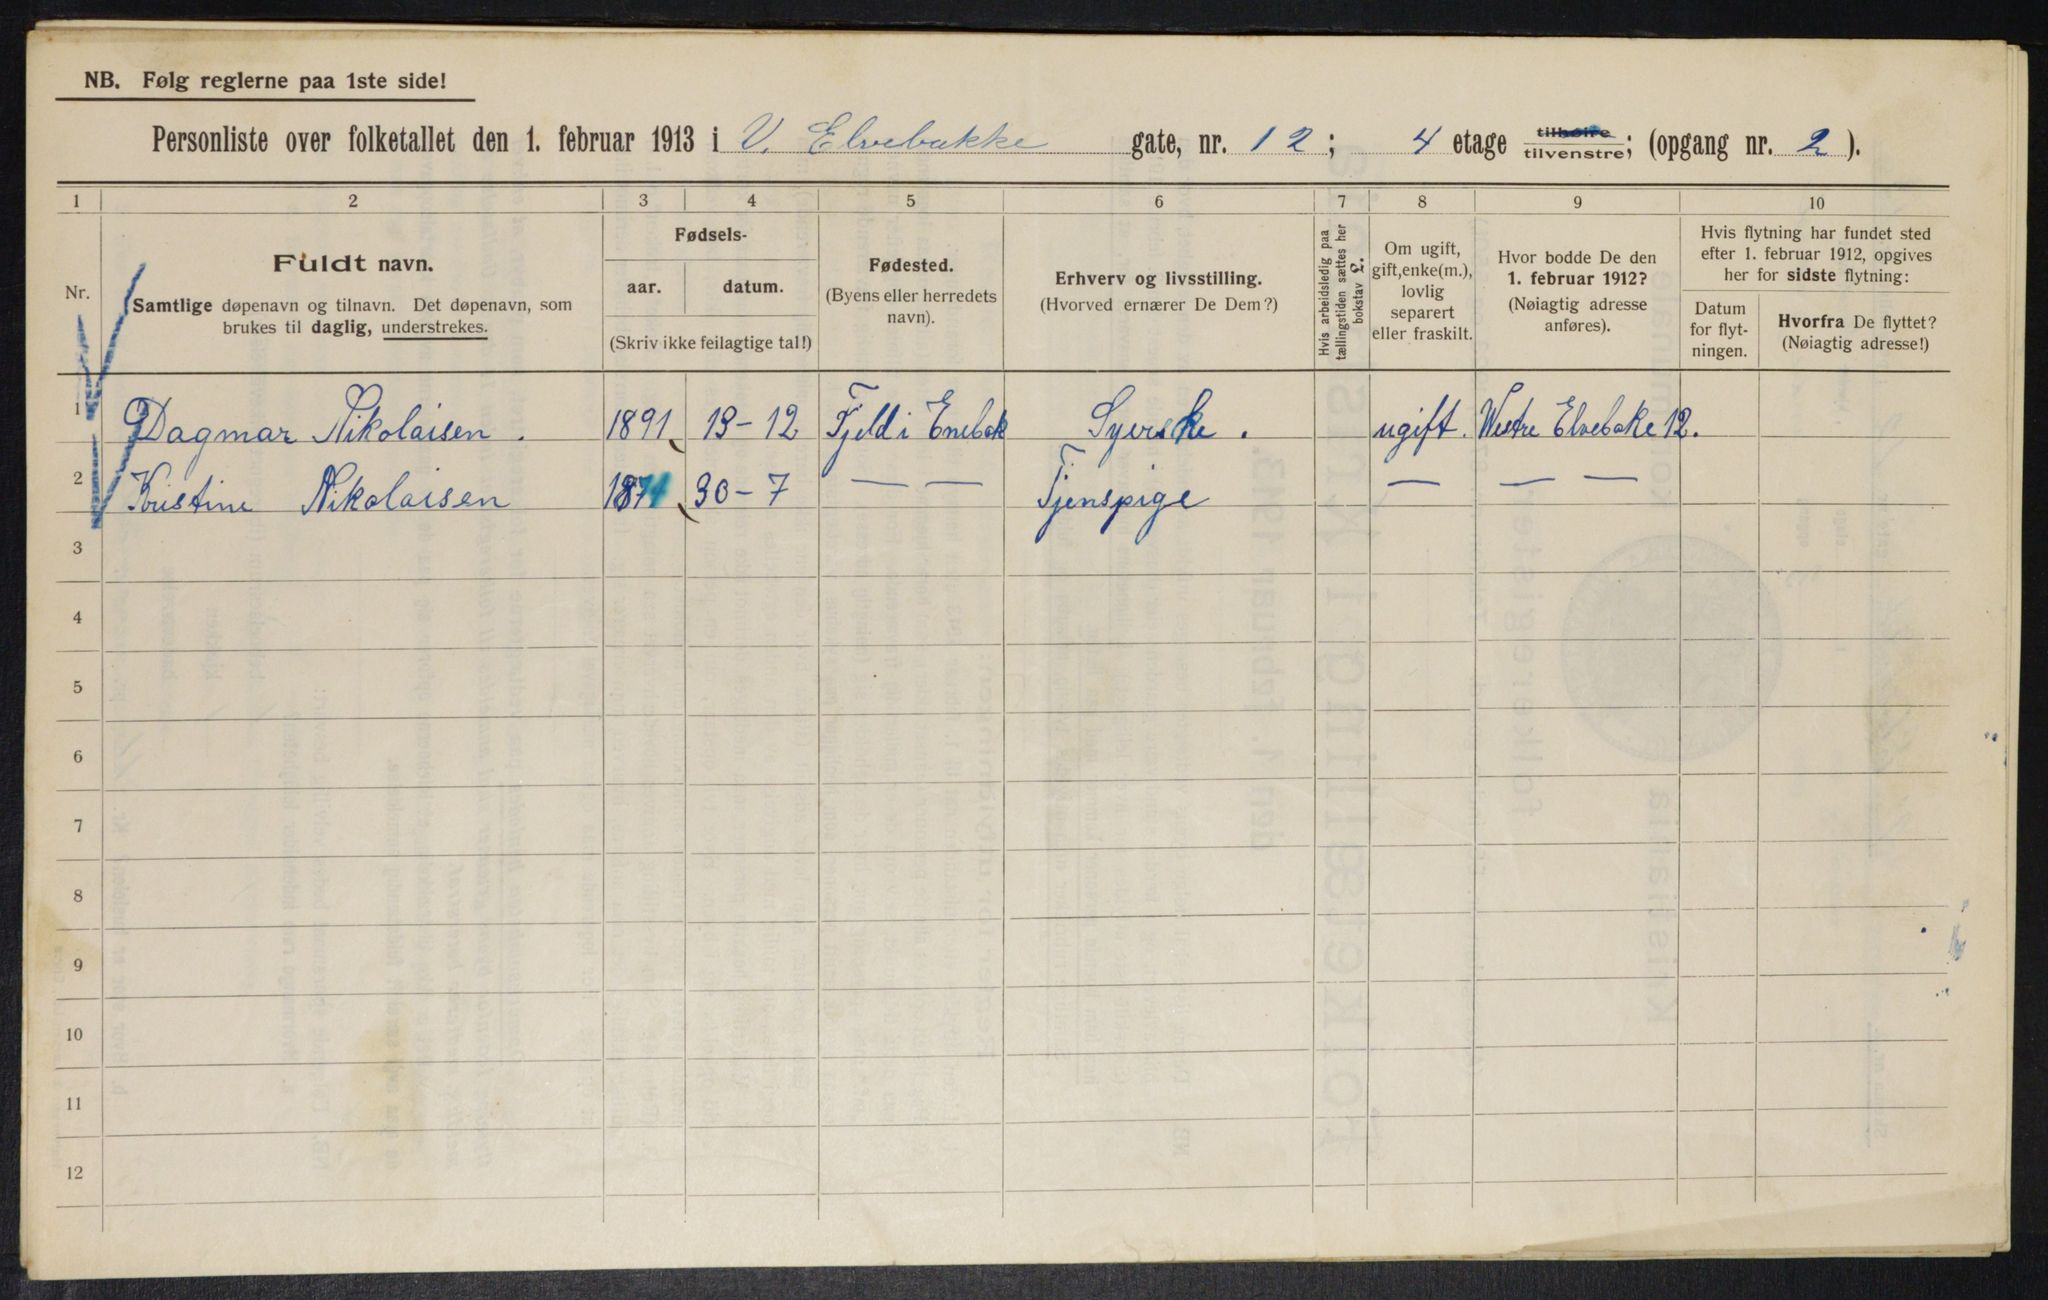 NB. Følg reglerne paa 1ste side!
Personliste over folketallet den 1. februar 1913 i V. Elvebakke gate, nr. 12; 4 etage tilhøire tilvenstre; (opgang nr. 2).
1 2 3 4 5 6 7 8 9 10
Nr.
Fuldt navn.
Samtlige døpenavn og tilnavn. Det døpenavn, som
brukes til daglig, understrekes.
Fødsels-
aar. datum.
(Skriv ikke feilagtige tal!)
Fødested.
(Byens eller herredets
navn).
Erhverv og livsstilling.
(Hvorved ernærer De Dem?)
Hvis arbeidsledig paa
tællingstiden sættes her
bokstav L.
Om ugift,
gift, enke(m.),
lovlig
separert
eller fraskilt.
Hvor bodde De den
1. februar 1912?
(Nøiagtig adresse
anføres).
Hvis flytning har fundet sted
efter 1. februar 1912, opgives
her for sidste flytning:
Datum
for flyt-
ningen.
Hvorfra De flyttet?
(Nøiagtig adresse!)
1 Dagmar Nikolaisen. 1891 13-12 Fjeld i Enebak Syerske. ugift. Westre Elvebake 12.
2 Kristine Nikolaisen 1874 30-7 — — Tjenspige — — —
3
4
5
6
7
8
9
10
11
12